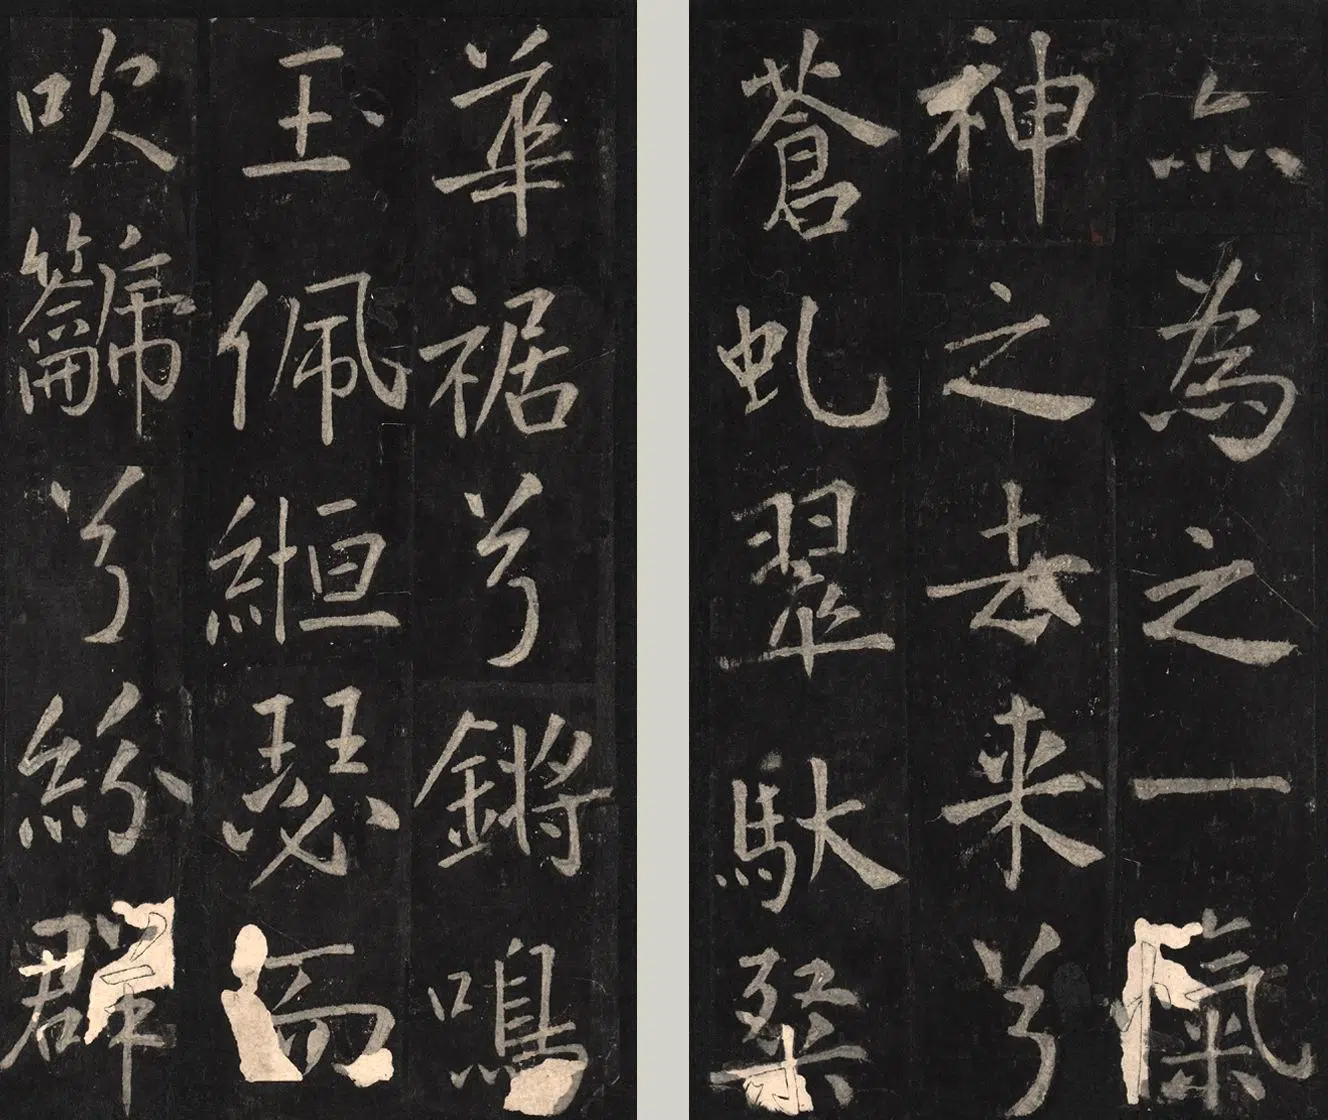 亦為之一氣
神之去来兮
蒼虬翠馱粲
華裾兮鏘鳴
玉佩緪瑟而
吹䶵兮紛群